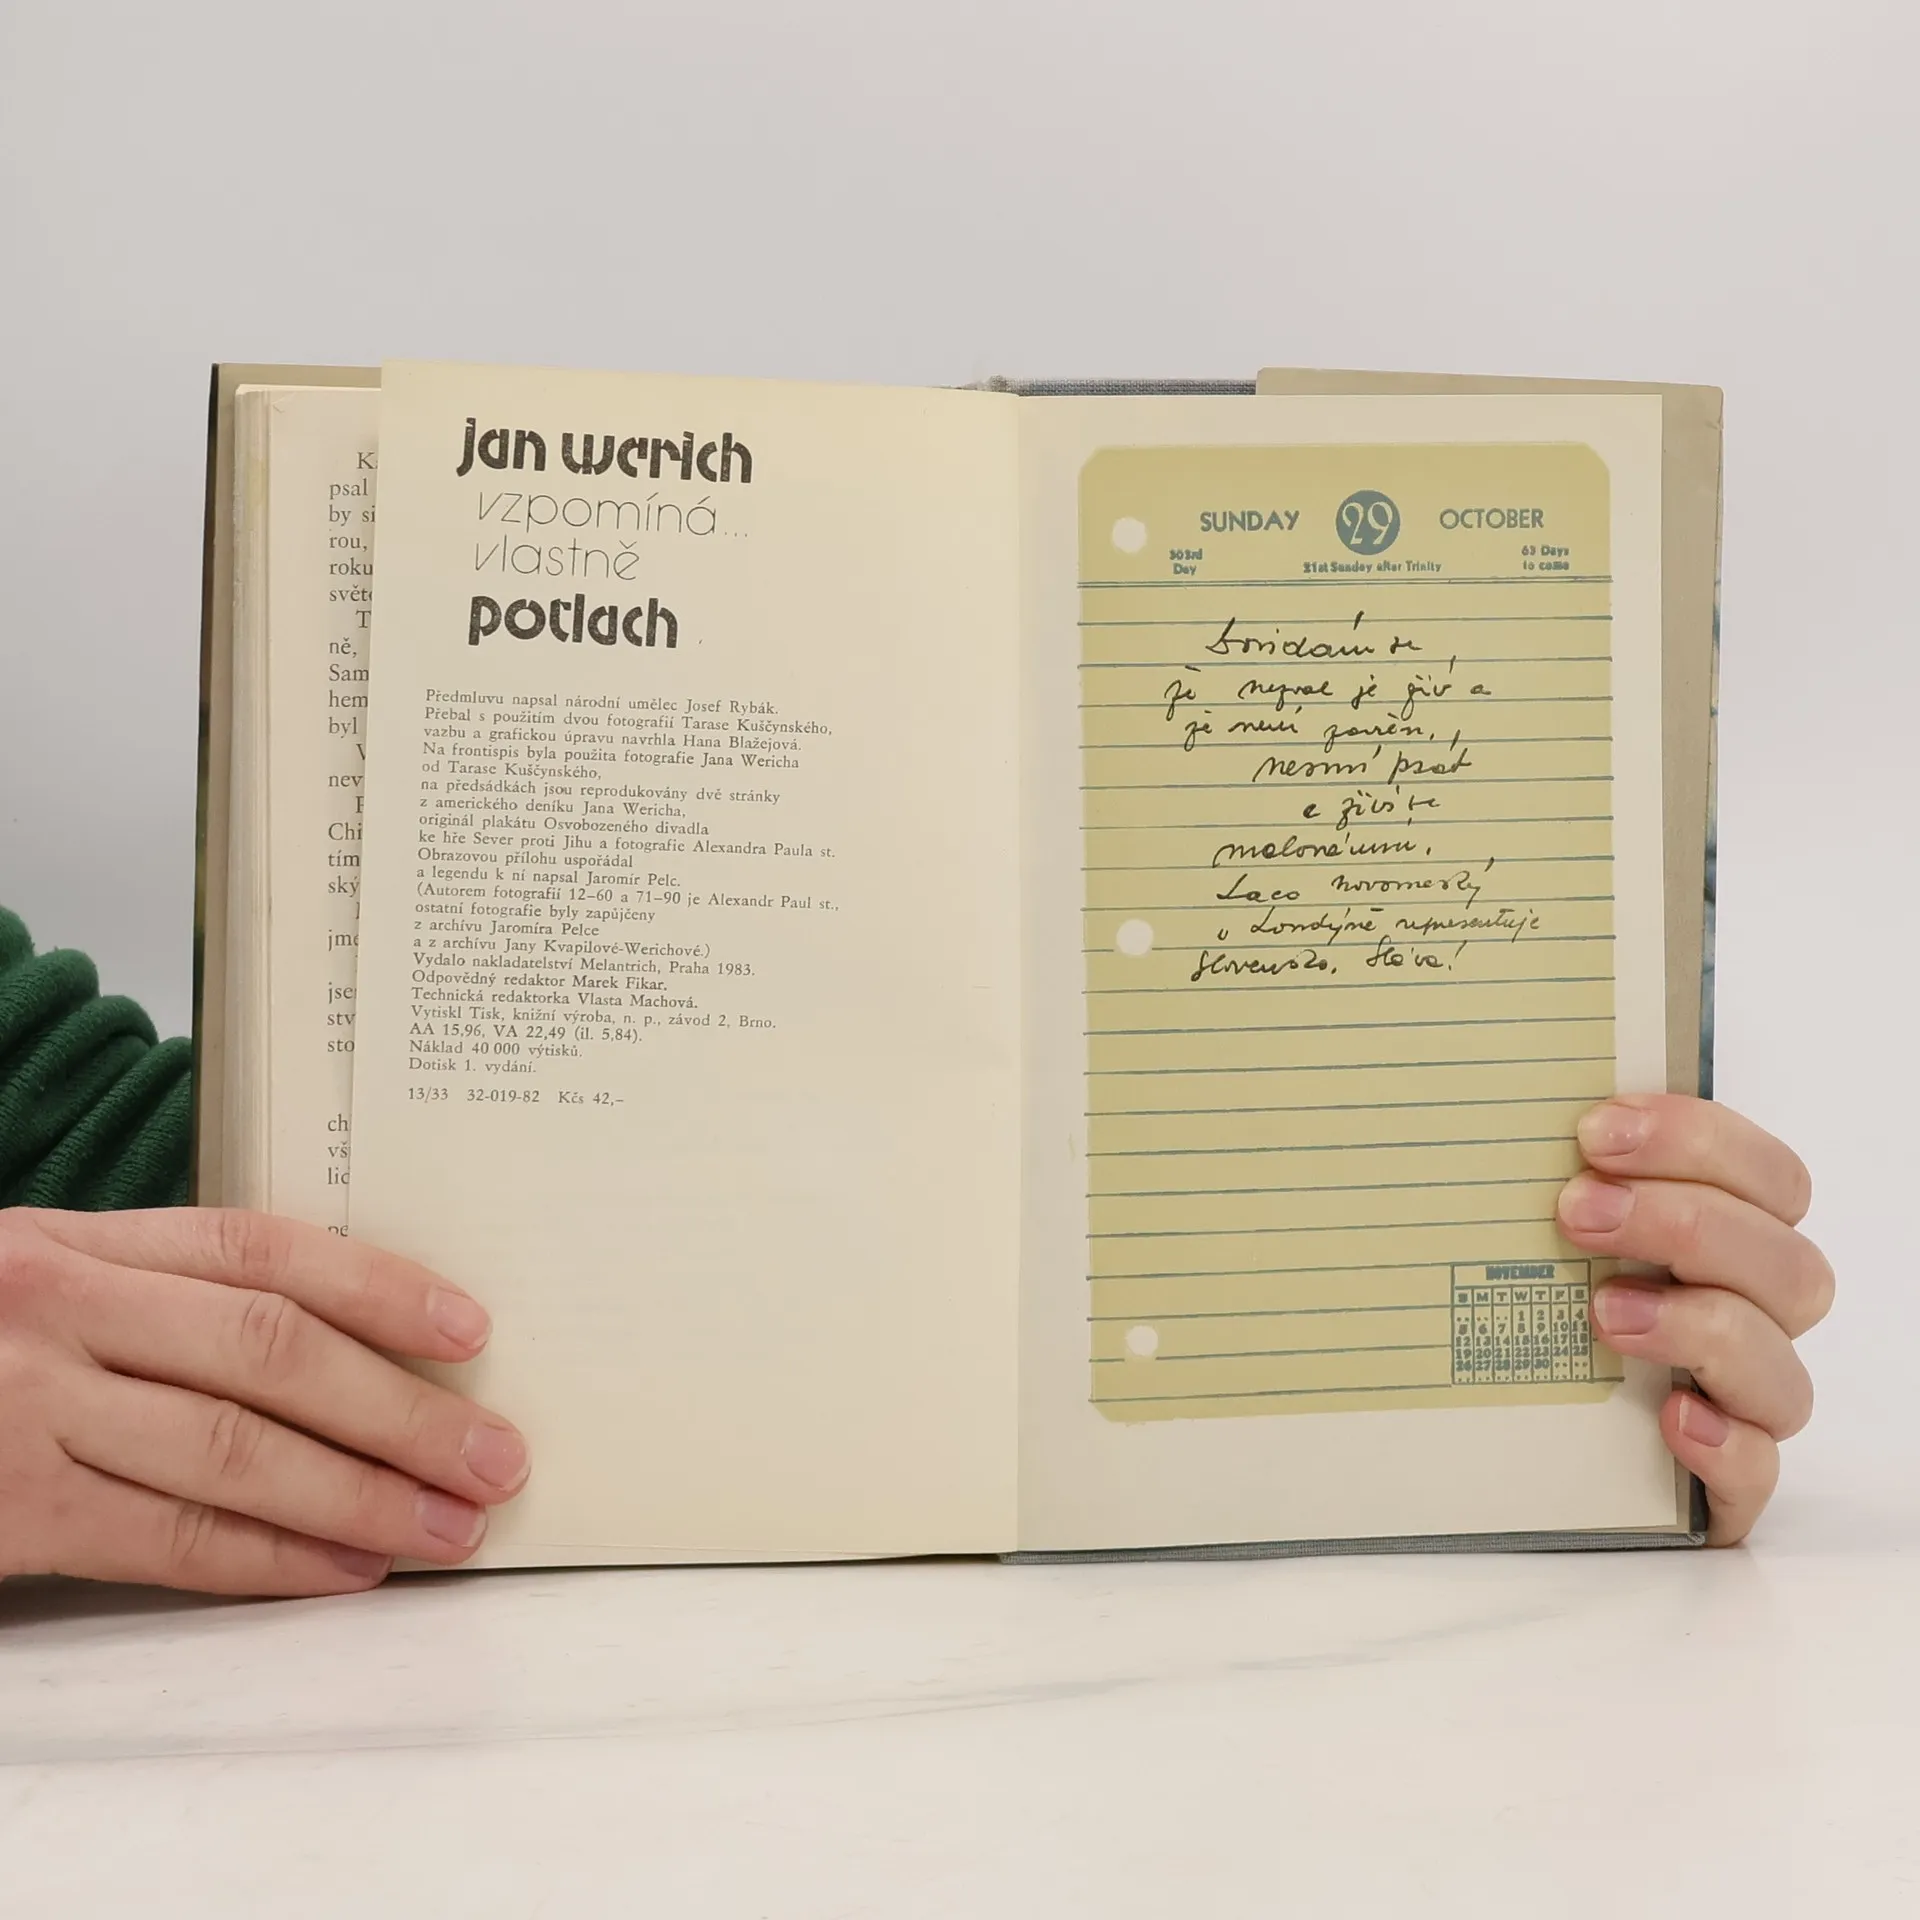 K
psal
by si
rou,
roku
svět
T
ně,
Sam
hem
byl
V
nev
Chi
tím
ský
jme
jse
stv
sto
ch
vš
lid
pe
jan werich
vzpomíná...
vlastně
potlach
Předmluvu napsal národní umělec Josef Rybák.
Přebal s použitím dvou fotografií Tarase Kuščynského,
vazbu a grafickou úpravu navrhla Hana Blažejová.
Na frontispis byla použita fotografie Jana Wericha
od Tarase Kuščynského,
na předsádkách jsou reprodukovány dvě stránky
z amerického deníku Jana Wericha,
originál plakátu Osvobozeného divadla
ke hře Sever proti Jihu a fotografie Alexandra Paula st.
Obrazovou přílohu uspořádal
a legendu k ní napsal Jaromír Pelc.
(Autorem fotografií 12–60 a 71–90 je Alexandr Paul st.,
ostatní fotografie byly zapůjčeny
z archívu Jaromíra Pelce
a z archívu Jany Kvapilové-Werichové.)
Vydalo nakladatelství Melantrich, Praha 1983.
Odpovědný redaktor Marek Fikar.
Technická redaktorka Vlasta Machová.
Vytiskl Tisk, knižní výroba, n. p., závod 2, Brno.
AA 15,96, VA 22,49 (il. 5,84).
Náklad 40 000 výtisků.
Dotisk 1. vydání.
13/33 32-019-82 Kčs 42,–
SUNDAY 29 OCTOBER
303rd Day 21st Sunday after Trinity 63 Days to come
Dovídám se,
že nezval je živ a
že není zavřen,
nesmí psát
a živí se
malováním.
Laco Novomeský
v Londýně representuje
Slovensko. Sláva!
NOVEMBER
S M T W T F S
.. .. .. 1 2 3 4
5 6 7 8 9 10 11
12 13 14 15 16 17 18
19 20 21 22 23 24 25
26 27 28 29 30 .. ..